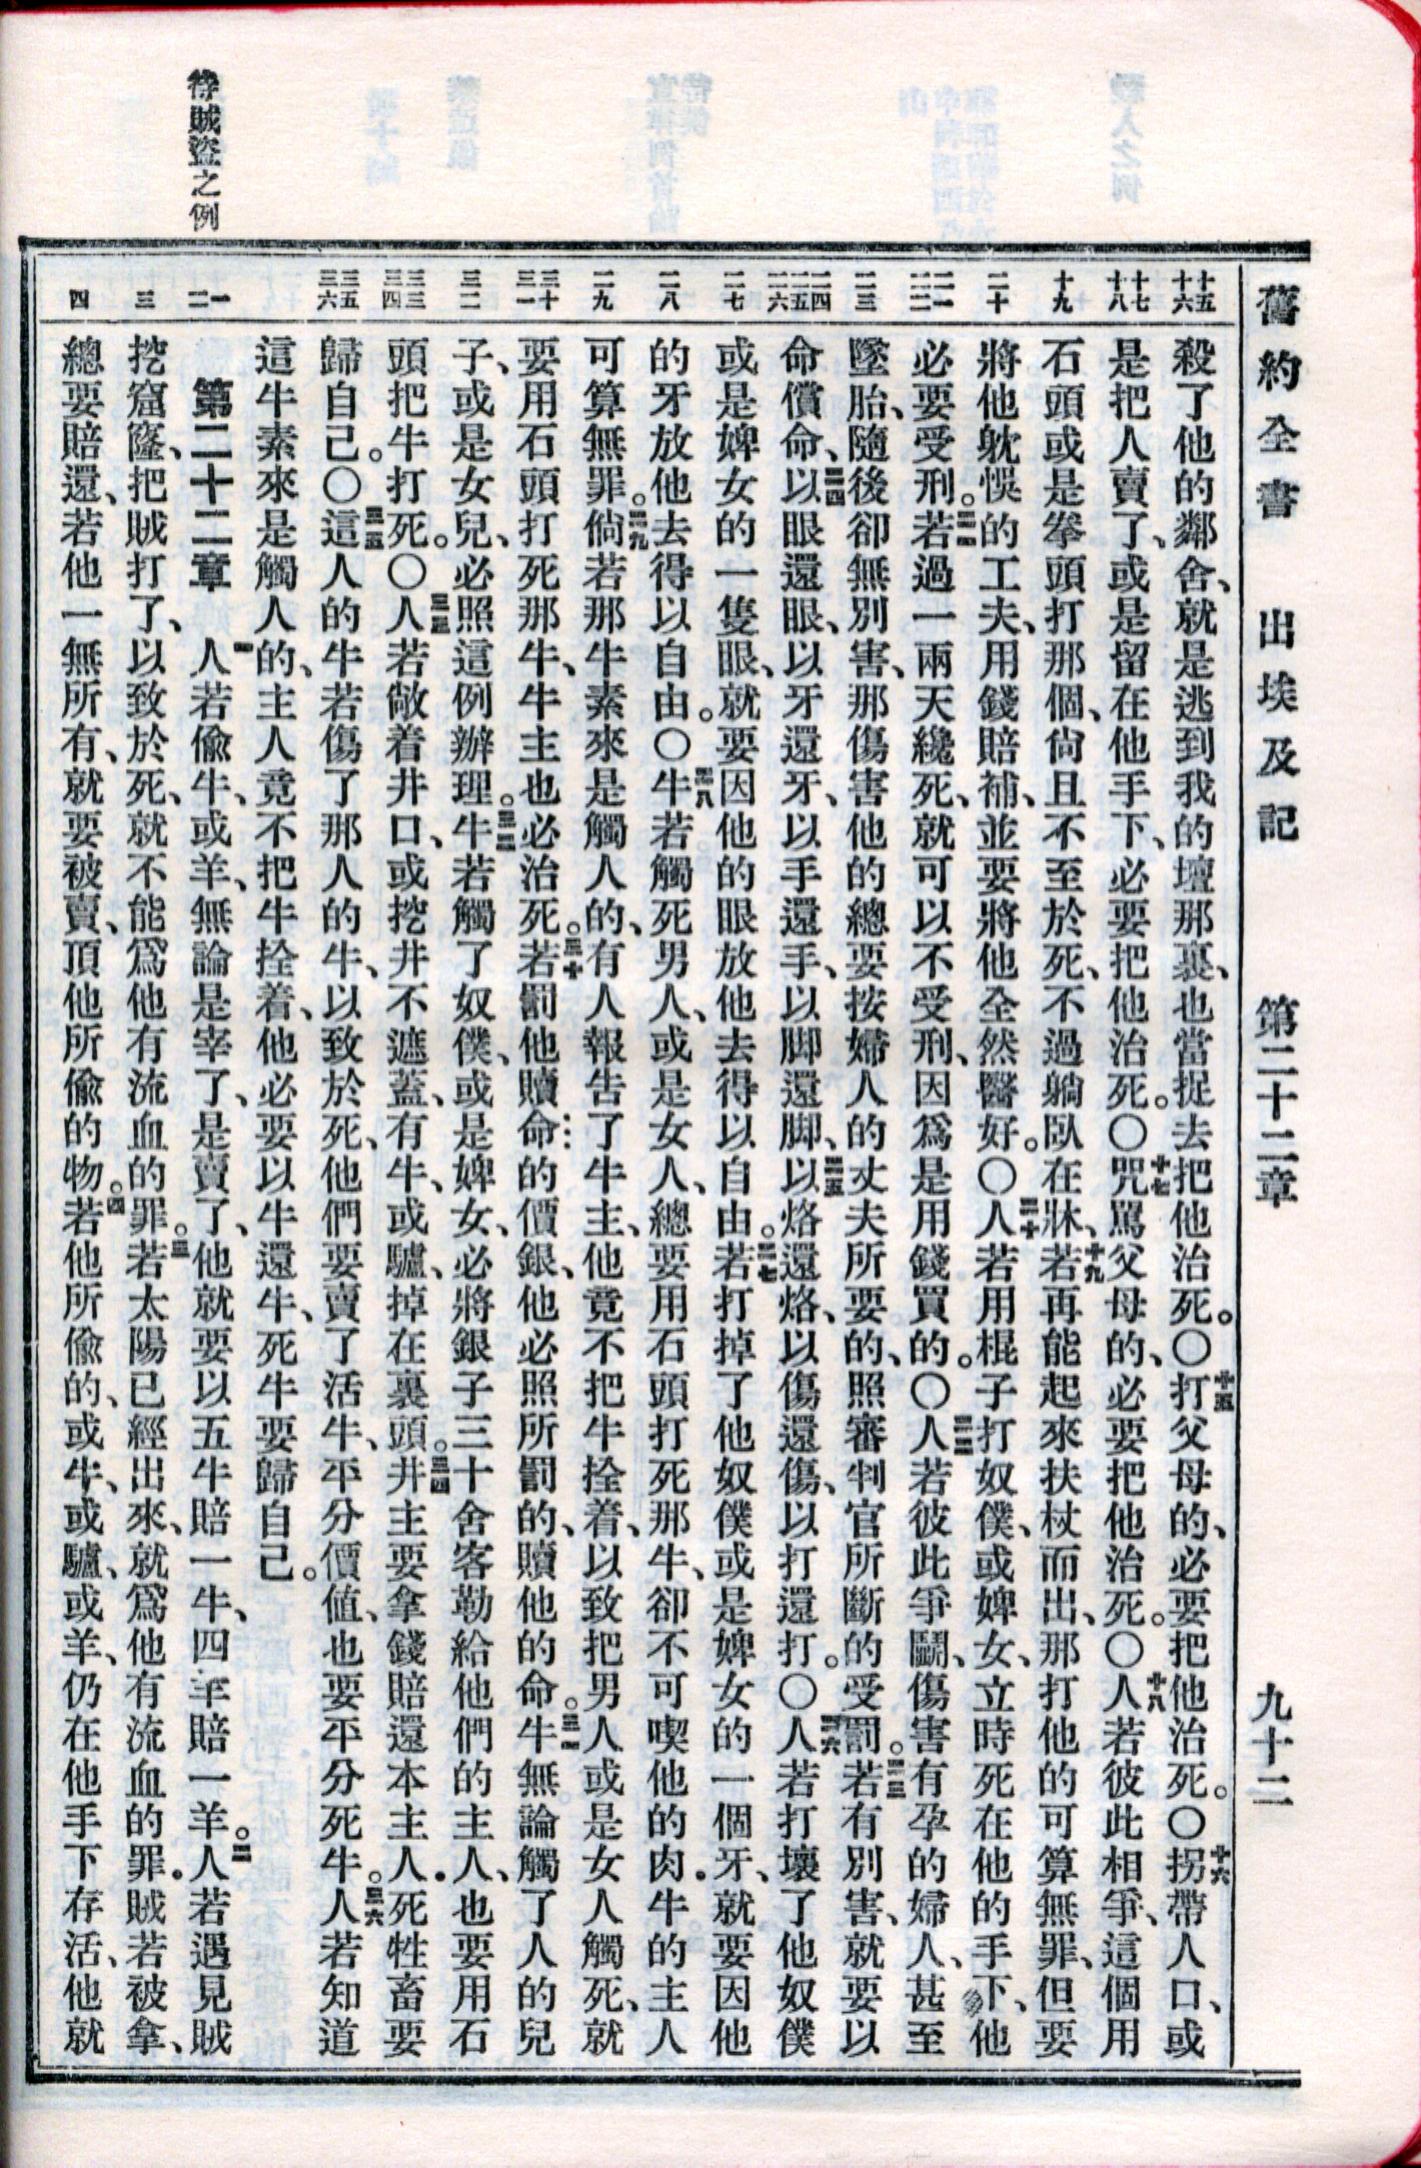 舊約全書 出埃及記 第二十二章 九十二
待賊盜之例
十五 十六
十七 十八
十九
二十
二一 二二
二三
二四 二五 二六
二七
二八
二九
三十 三一
三二
三三 三四
三五 三六
一 二
三
四
殺了他的鄰舍、就是逃到我的壇那裏、也當捉去把他治死。〇十五打父母的、必要把他治死。〇十六拐帶人口、或
是把人賣了、或是留在他手下、必要把他治死。〇十七咒罵父母的、必要把他治死。〇十八人若彼此相爭、這個用
石頭或是拳頭打那個、尙且不至於死、不過躺臥在牀、十九若再能起來扶杖而出、那打他的可算無罪、但要
將他躭悞的工夫、用錢賠補、並要將他全然醫好。〇二十人若用棍子打奴僕、或婢女、立時死在他的手下、他
必要受刑。二一若過一兩天纔死、就可以不受刑、因爲是用錢買的。〇二二人若彼此爭鬭、傷害有孕的婦人、甚至
墜胎、隨後卻無別害、那傷害他的總要按婦人的丈夫所要的、照審判官所斷的受罰。二三若有別害、就要以
命償命、二四以眼還眼、以牙還牙、以手還手、以脚還脚、二五以烙還烙、以傷還傷、以打還打。〇二六人若打壞了他奴僕
或是婢女的一隻眼、就要因他的眼放他去得以自由。二七若打掉了他奴僕或是婢女的一個牙、就要因他
的牙放他去得以自由。〇二八牛若觸死男人、或是女人、總要用石頭打死那牛、卻不可喫他的肉．牛的主人
可算無罪。二九倘若那牛素來是觸人的、有人報告了牛主、他竟不把牛拴着、以致把男人或是女人觸死、就
要用石頭打死那牛、牛主也必治死。三十若罰他贖命的價銀、他必照所罰的、贖他的命。三一牛無論觸了人的兒
子、或是女兒、必照這例辦理。三二牛若觸了奴僕、或是婢女、必將銀子三十舍客勒給他們的主人、也要用石
頭把牛打死。〇三三人若敞着井口、或挖井不遮蓋、有牛、或驢、掉在裏頭。三四井主要拿錢賠還本主人．死牲畜要
歸自己。〇三五這人的牛若傷了那人的牛、以致於死、他們要賣了活牛、平分價値、也要平分死牛。三六人若知道
這牛素來是觸人的、主人竟不把牛拴着、他必要以牛還牛、死牛要歸自己。
第二十二章 一人若偷牛、或羊、無論是宰了、是賣了、他就要以五牛賠一牛、四羊賠一羊。二人若遇見賊
挖窟窿、把賊打了、以致於死、就不能爲他有流血的罪。三若太陽已經出來、就爲他有流血的罪．賊若被拿、
總要賠還、若他一無所有、就要被賣、頂他所偷的物。四若他所偷的、或牛、或驢、或羊、仍在他手下存活、他就